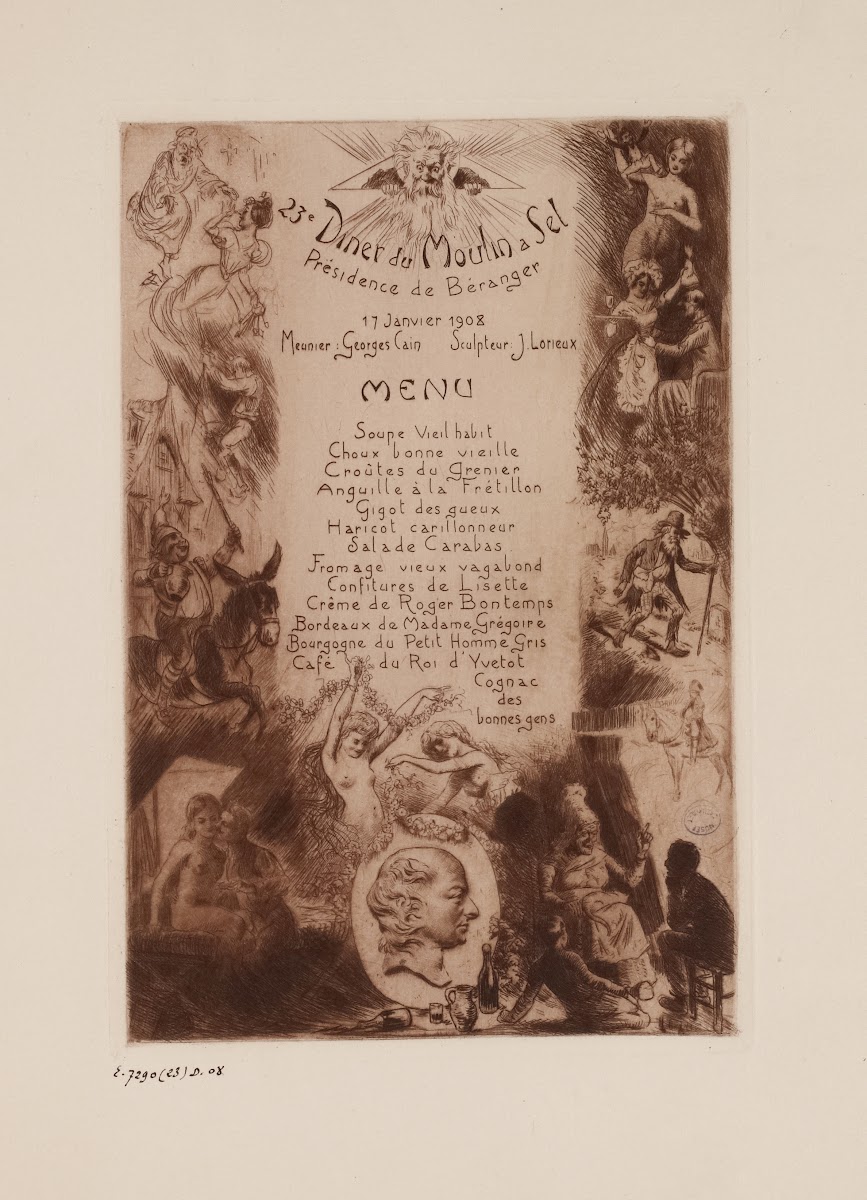 23e Diner du Moulin a Sel
Présidence de Béranger
17 Janvier 1908
Meunier : Georges Cain Sculpteur : J. Lorieux
MENU
Soupe Vieil habit
Choux bonne vieille
Croûtes du Grenier
Anguille à la Frétillon
Gigot des gueux
Haricot carillonneur
Salade Carabas
Fromage vieux vagabond
Confitures de Lisette
Crême de Roger Bontemps
Bordeaux de Madame Grégoire
Bourgogne du Petit Homme Gris
Café du Roi d'Yvetot
Cognac
des
bonnes gens
E. 7290 (23) D. 08